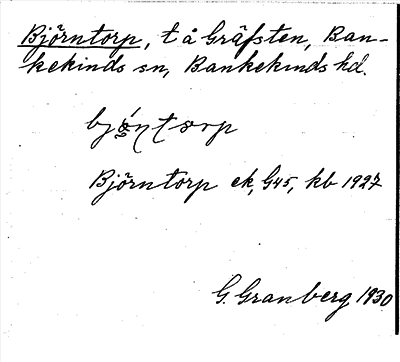 Björntorp, t å Gräfsten, Ban-
kekinds sn, Bankekinds hd.
Björntorp ek, G45, kb 1927
G. Granberg 1930